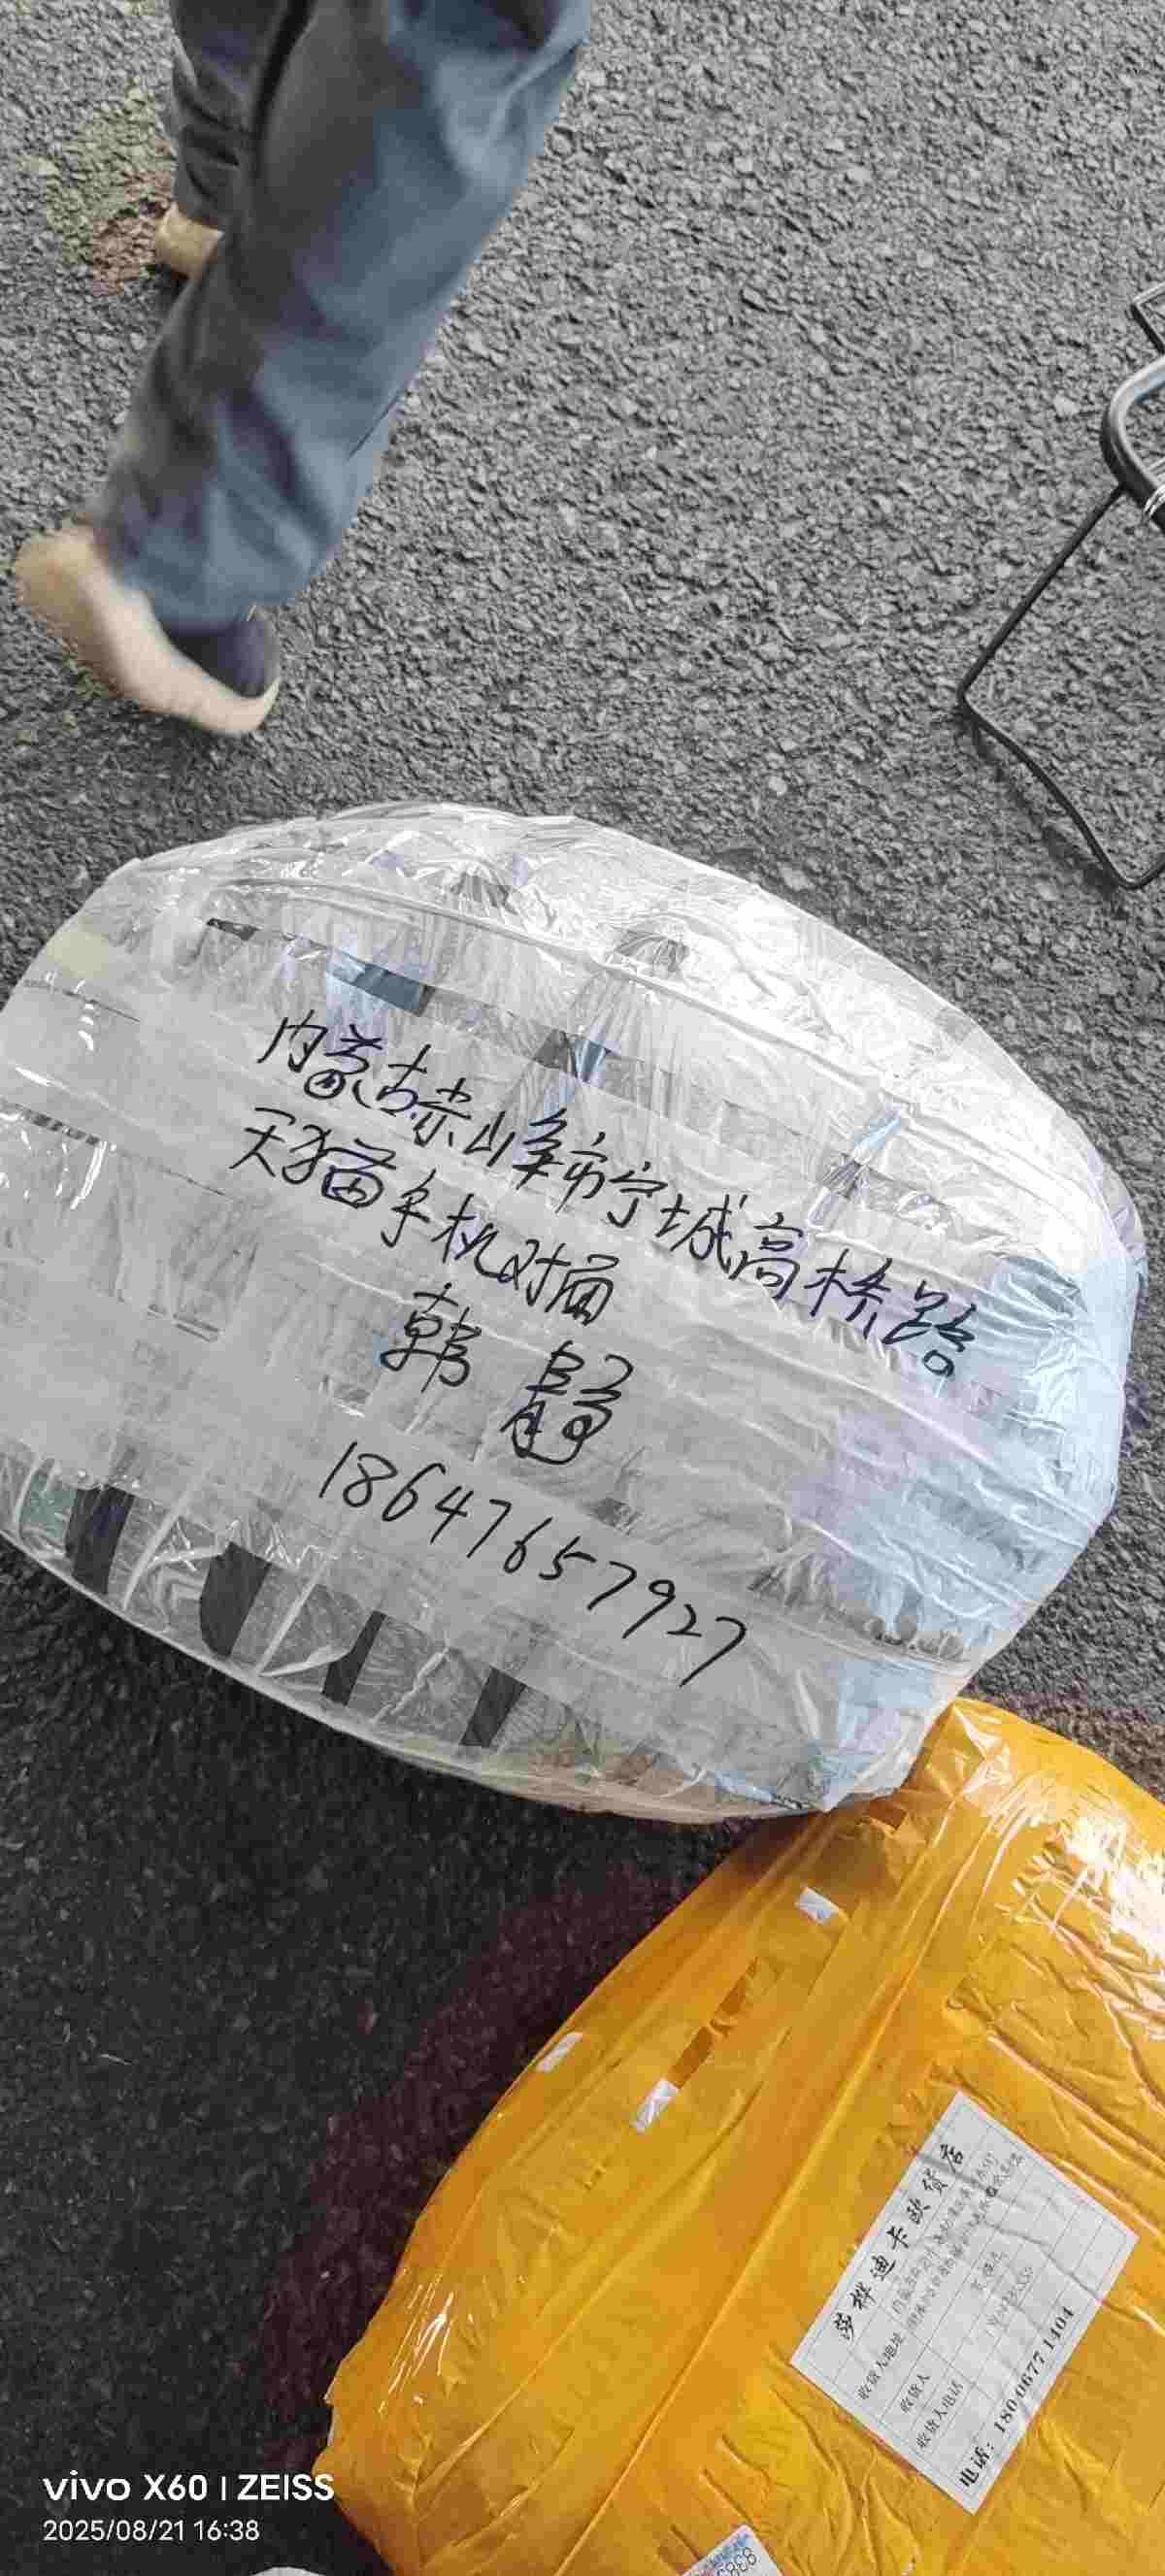 内蒙古赤山峰市宁城高桥路
天猫手机对面
韩静
18647657927
莎桦迪卡欧货店
收货人地址
收货人
收货人电话
电话: 180 0677 1404
vivo X60 | ZEISS
2025/08/21 16:38